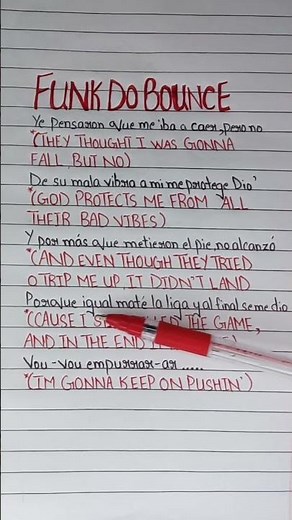 FUNK DO BOUNCE
Ye pensaron que me iba a caer, pero no
*(THEY THOUGHT I WAS GONNA
FALL BUT NO)
De su mala vibra a mi me protege Dio'
*(GOD PROTECTS ME FROM ALL
THEIR BAD VIBES)
Y por más que metieron el pie, no alcanzó
*(AND EVEN THOUGH THEY TRIED
O TRIP ME UP, IT DIDN'T LAND
Porque igual maté la liga y al final se me dio
*(CAUSE I THE GAME,
AND IN THE END
Vou-vou empurrar-ar.....
*(I'M GONNA KEEP ON PUSHIN')